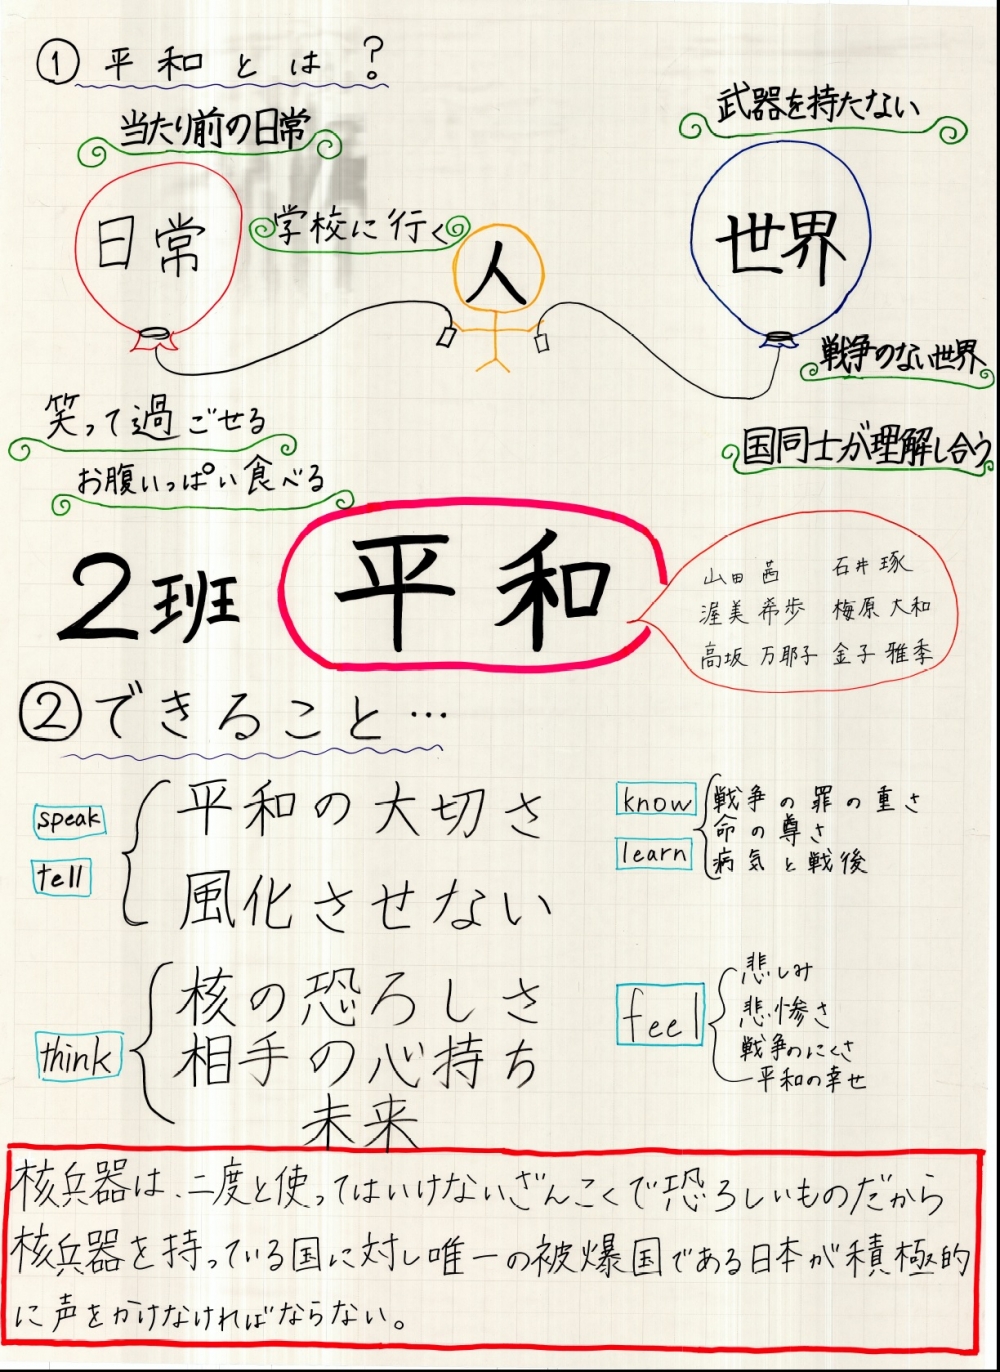 ① 平和とは？
当たり前の日常
武器を持たない
日常
学校に行く
人
世界
戦争のない世界
笑って過ごせる
国同士が理解し合う
お腹いっぱい食べる
2班
平和
山田 茜 石井 琢
渥美 希歩 梅原 大和
高坂 万耶子 金子 雅季
② できること…
speak
tell
平和の大切さ
風化させない
know
learn
戦争の罪の重さ
命の尊さ
病気と戦後
think
核の恐ろしさ
相手の心持ち
未来
feel
悲しみ
悲惨さ
戦争のにくさ
平和の幸せ
核兵器は、二度と使ってはいけないざんこくで恐ろしいものだから
核兵器を持っている国に対し唯一の被爆国である日本が積極的
に声をかけなければならない。